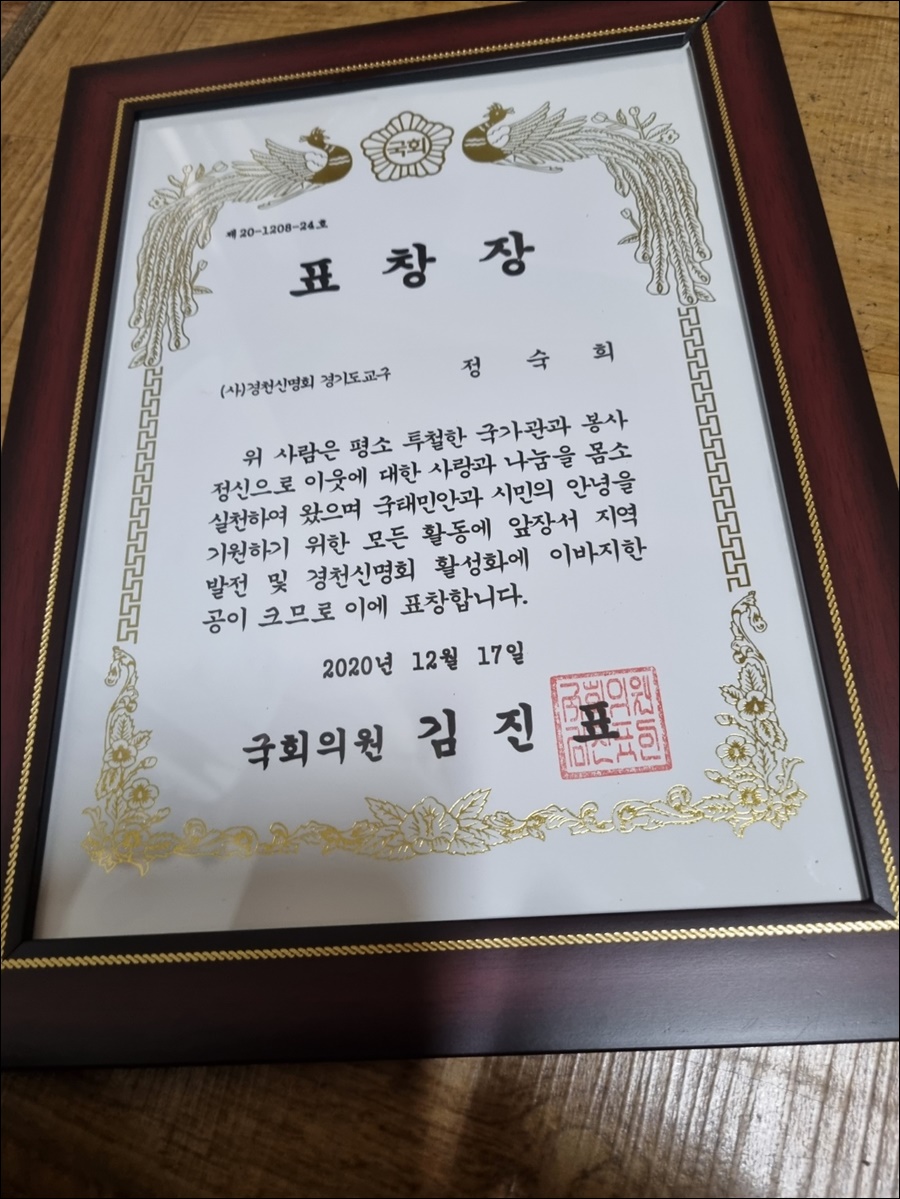 국회
제 20-1208-24호
표 창 장
(사)경천신명회 경기도교구 정 숙 희
위 사람은 평소 투철한 국가관과 봉사
정신으로 이웃에 대한 사랑과 나눔을 몸소
실천하여 왔으며 국태민안과 시민의 안녕을
기원하기 위한 모든 활동에 앞장서 지역
발전 및 경천신명회 활성화에 이바지한
공이 크므로 이에 표창합니다.
2020년 12월 17일
국회의원 김 진 표
국회의원
김진표인